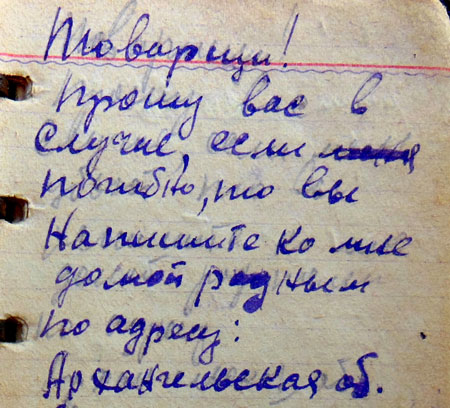 Товарищи!
Прошу вас в
случие, если
погибню, то вы
напишите ко мне
домой родным
по адресу:
Архангельская об.